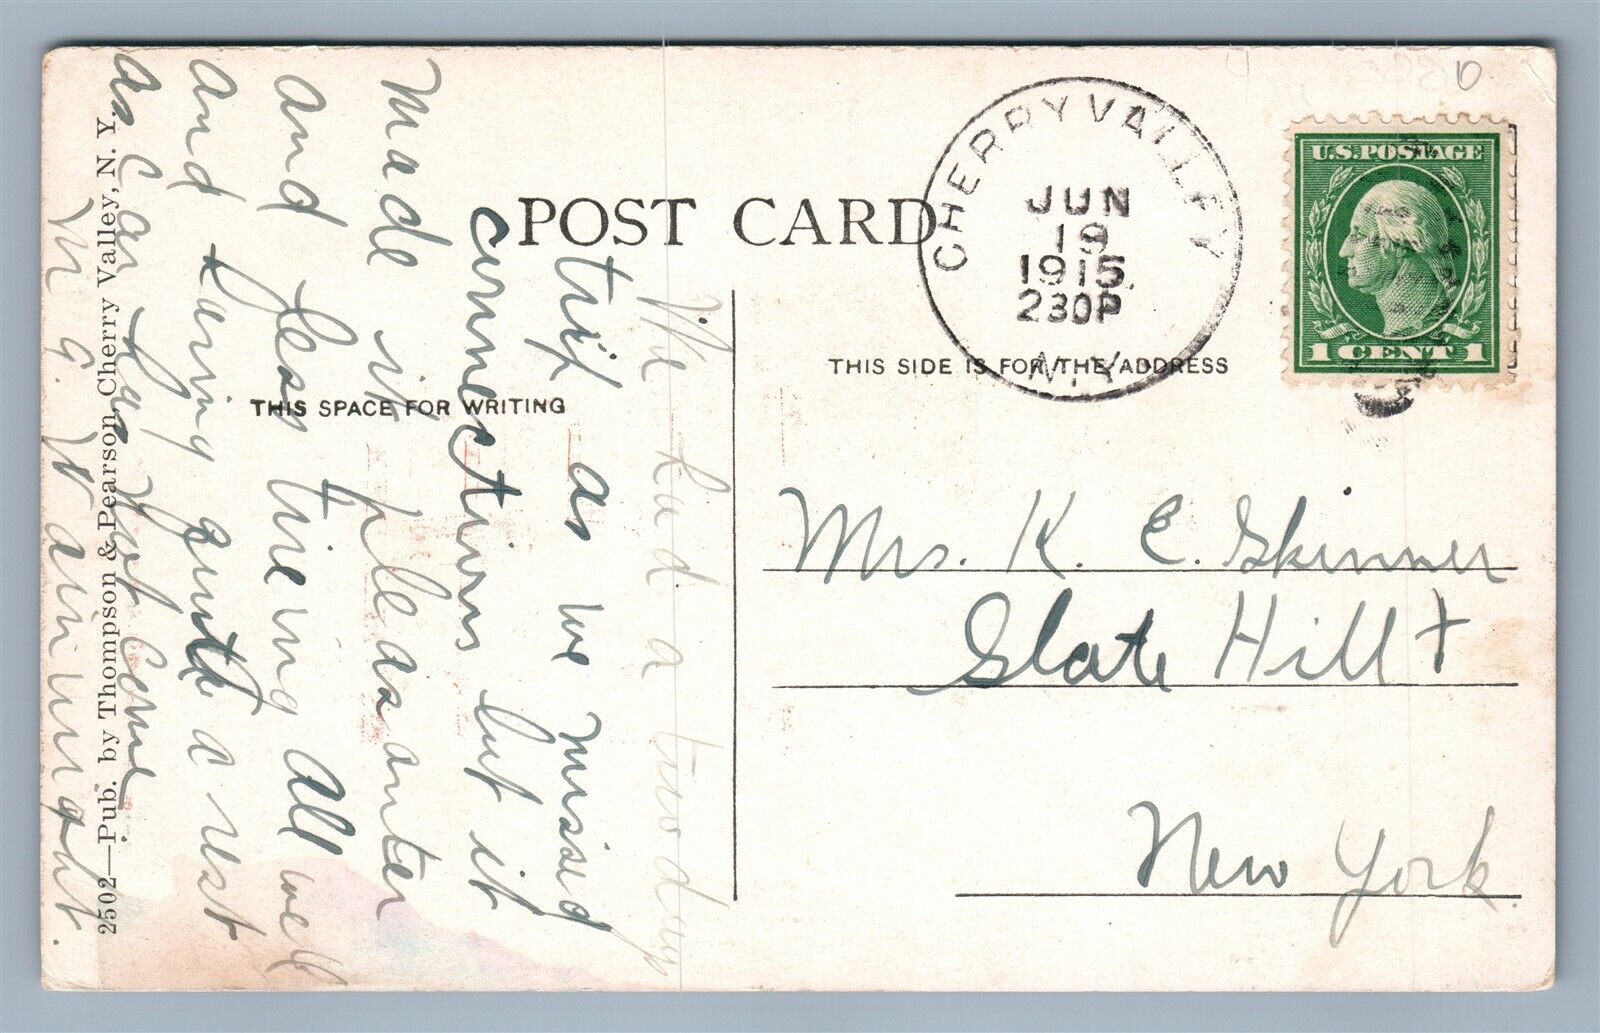 POST CARD
CHERRY VALLEY
JUN
19
1915
230P
N.Y.
U.S. POSTAGE
1 CENT 1
THIS SIDE IS FOR THE ADDRESS
THIS SPACE FOR WRITING
We had a two days
trip as we missed
connections but it
made it pleasanter
and less tireing all well
and having quite a rest
as Car has not come
M. G. Wainwright.
2502—Pub. by Thompson & Pearson, Cherry Valley, N. Y.
Mrs. K. E. Skinner
Slate Hill
New York.